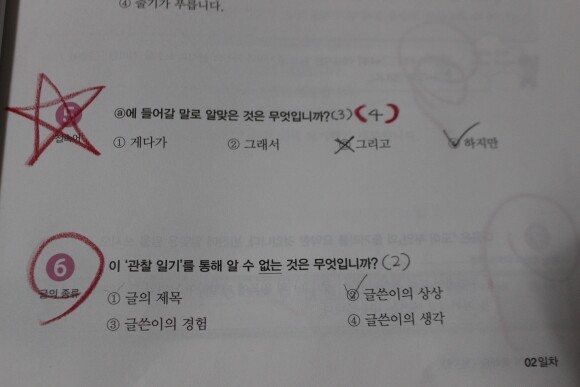 ④ 줄기가 푸릅니다.
5
접속어
ⓐ에 들어갈 말로 알맞은 것은 무엇입니까? (3) (4)
① 게다가 ② 그래서 ③ 그리고 ④ 하지만
6
글의 종류
이 '관찰 일기'를 통해 알 수 없는 것은 무엇입니까? (2)
① 글의 제목 ② 글쓴이의 상상
③ 글쓴이의 경험 ④ 글쓴이의 생각
02일차